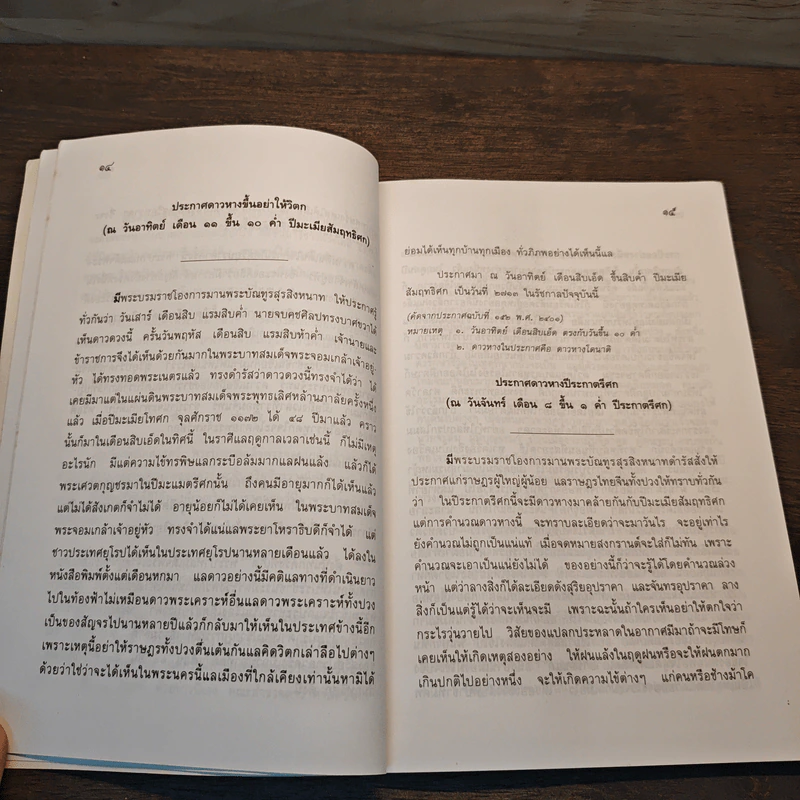 ๑๔
ประกาศดาวหางขึ้นอย่าให้วิตก
(ณ วันอาทิตย์ เดือน ๑๑ ขึ้น ๑๐ ค่ำ ปีมะเมียสัมฤทธิศก)
มีพระบรมราชโองการมานพระบัณฑูรสุรสิงหนาท ให้ประกาศรู้
ทั่วกันว่า วันเสาร์ เดือนสิบ แรมสิบค่ำ นายจบคชศิลปทรงบาศขวาได้
เห็นดาวดวงนี้ ครั้นวันพฤหัส เดือนสิบ แรมสิบห้าค่ำ เจ้านายและ
ข้าราชการจึงได้เห็นด้วยกันมากในพระบาทสมเด็จพระจอมเกล้าเจ้าอยู่-
หัว ได้ทรงทอดพระเนตรแล้ว ทรงดำรัสว่าดาวดวงนี้ทรงจำได้ว่า ได้
เคยมีมาแต่ในแผ่นดินพระบาทสมเด็จพระพุทธเลิศหล้านภาลัยครั้งหนึ่ง
แล้ว เมื่อปีมะเมียโทศก จุลศักราช ๑๑๗๒ ได้ ๔๘ ปีมาแล้ว คราว
นั้นก็มาในเดือนสิบเอ็ดในทิศนี้ ในราศีแลฤดูกาลเวลาเช่นนี้ ก็ไม่มีเหตุ
อะไรนัก มีแต่ความไข้ทรพิษแลกระบือล้มมากแลฝนแล้ง แล้วก็ได้
พระเศวตกุญชรมาในปีมะแมตรีศกนั้น ถึงคนมีอายุมากก็ได้เห็นแล้ว
แต่ไม่ได้สังเกตก็จำไม่ได้ อายุน้อยก็ไม่ได้เคยเห็น ในพระบาทสมเด็จ
พระจอมเกล้าเจ้าอยู่หัว ทรงจำได้แน่แลพระยาโหราธิบดีก็จำได้ แต่
ชาวประเทศยุโรปได้เห็นในประเทศยุโรปนานหลายเดือนแล้ว ได้ลงใน
หนังสือพิมพ์ตั้งแต่เดือนหกมา แลดาวอย่างนี้มีคติแลทางที่ดำเนินยาว
ไปในท้องฟ้าไม่เหมือนดาวพระเคราะห์อื่นแลดาวพระเคราะห์ทั้งปวง
เป็นของสัญจรไปนานหลายปีแล้วก็กลับมาให้เห็นในประเทศข้างนี้อีก
เพราะเหตุนี้อย่าให้ราษฎรทั้งปวงตื่นเต้นกันแลคิดวิตกเล่าลือไปต่างๆ
ด้วยว่าใช่ว่าจะได้เห็นในพระนครนี้แลเมืองที่ใกล้เคียงเท่านั้นหามิได้
๑๕
ย่อมได้เห็นทุกบ้านทุกเมือง ทั่วภิภพอย่างได้เห็นนี้แล
ประกาศมา ณ วันอาทิตย์ เดือนสิบเอ็ด ขึ้นสิบค่ำ ปีมะเมีย
สัมฤทธิศก เป็นวันที่ ๒๗๑๓ ในรัชกาลปัจจุบันนี้
(คัดจากประกาศฉบับที่ ๑๕๒ พ.ศ. ๒๔๐๑)
หมายเหตุ ๑. วันอาทิตย์ เดือนสิบเอ็ด ตรงกับวันขึ้น ๑๐ ค่ำ
๒. ดาวหางในประกาศคือ ดาวหางโดนาติ
ประกาศดาวหางปีระกาตรีศก
(ณ วันจันทร์ เดือน ๘ ขึ้น ๑ ค่ำ ปีระกาตรีศก)
มีพระบรมราชโองการมานพระบัณฑูรสุรสิงหนาทดำรัสสั่งให้
ประกาศแก่ราษฎรผู้ใหญ่ผู้น้อย แลราษฎรไทยจีนทั้งปวงให้ทราบทั่วกัน
ว่า ในปีระกาตรีศกนี้จะมีดาวหางมาคล้ายกันกับปีมะเมียสัมฤทธิศก
แต่การคำนวณดาวหางนี้ จะทราบละเอียดว่าจะมาวันไร จะอยู่เท่าไร
ยังคำนวณไม่ถูกเป็นแน่แท้ เมื่อจดหมายสงกรานต์จะใส่ก็ไม่ทัน เพราะ
คำนวณจะเอาเป็นแน่ยังไม่ได้ ของอย่างนี้ก็ว่าจะรู้ได้โดยคำนวณล่วง
หน้า แต่ว่าลางสิ่งก็ได้ละเอียดดังสุริยอุปราคา และจันทรอุปราคา ลาง
สิ่งก็เป็นแต่รู้ได้ว่าจะเห็นจะมี เพราะฉะนั้นถ้าใครเห็นอย่าให้ตกใจว่า
กระไรวุ่นวายไป วิสัยของแปลกประหลาดในอากาศมีมาถ้าจะมีโทษก็
เคยเห็นให้เกิดเหตุสองอย่าง ให้ฝนแล้งในฤดูฝนหรือจะให้ฝนตกมาก
เกินปกติไปอย่างหนึ่ง จะให้เกิดความไข้ต่างๆ แก่คนหรือช้างม้าโค